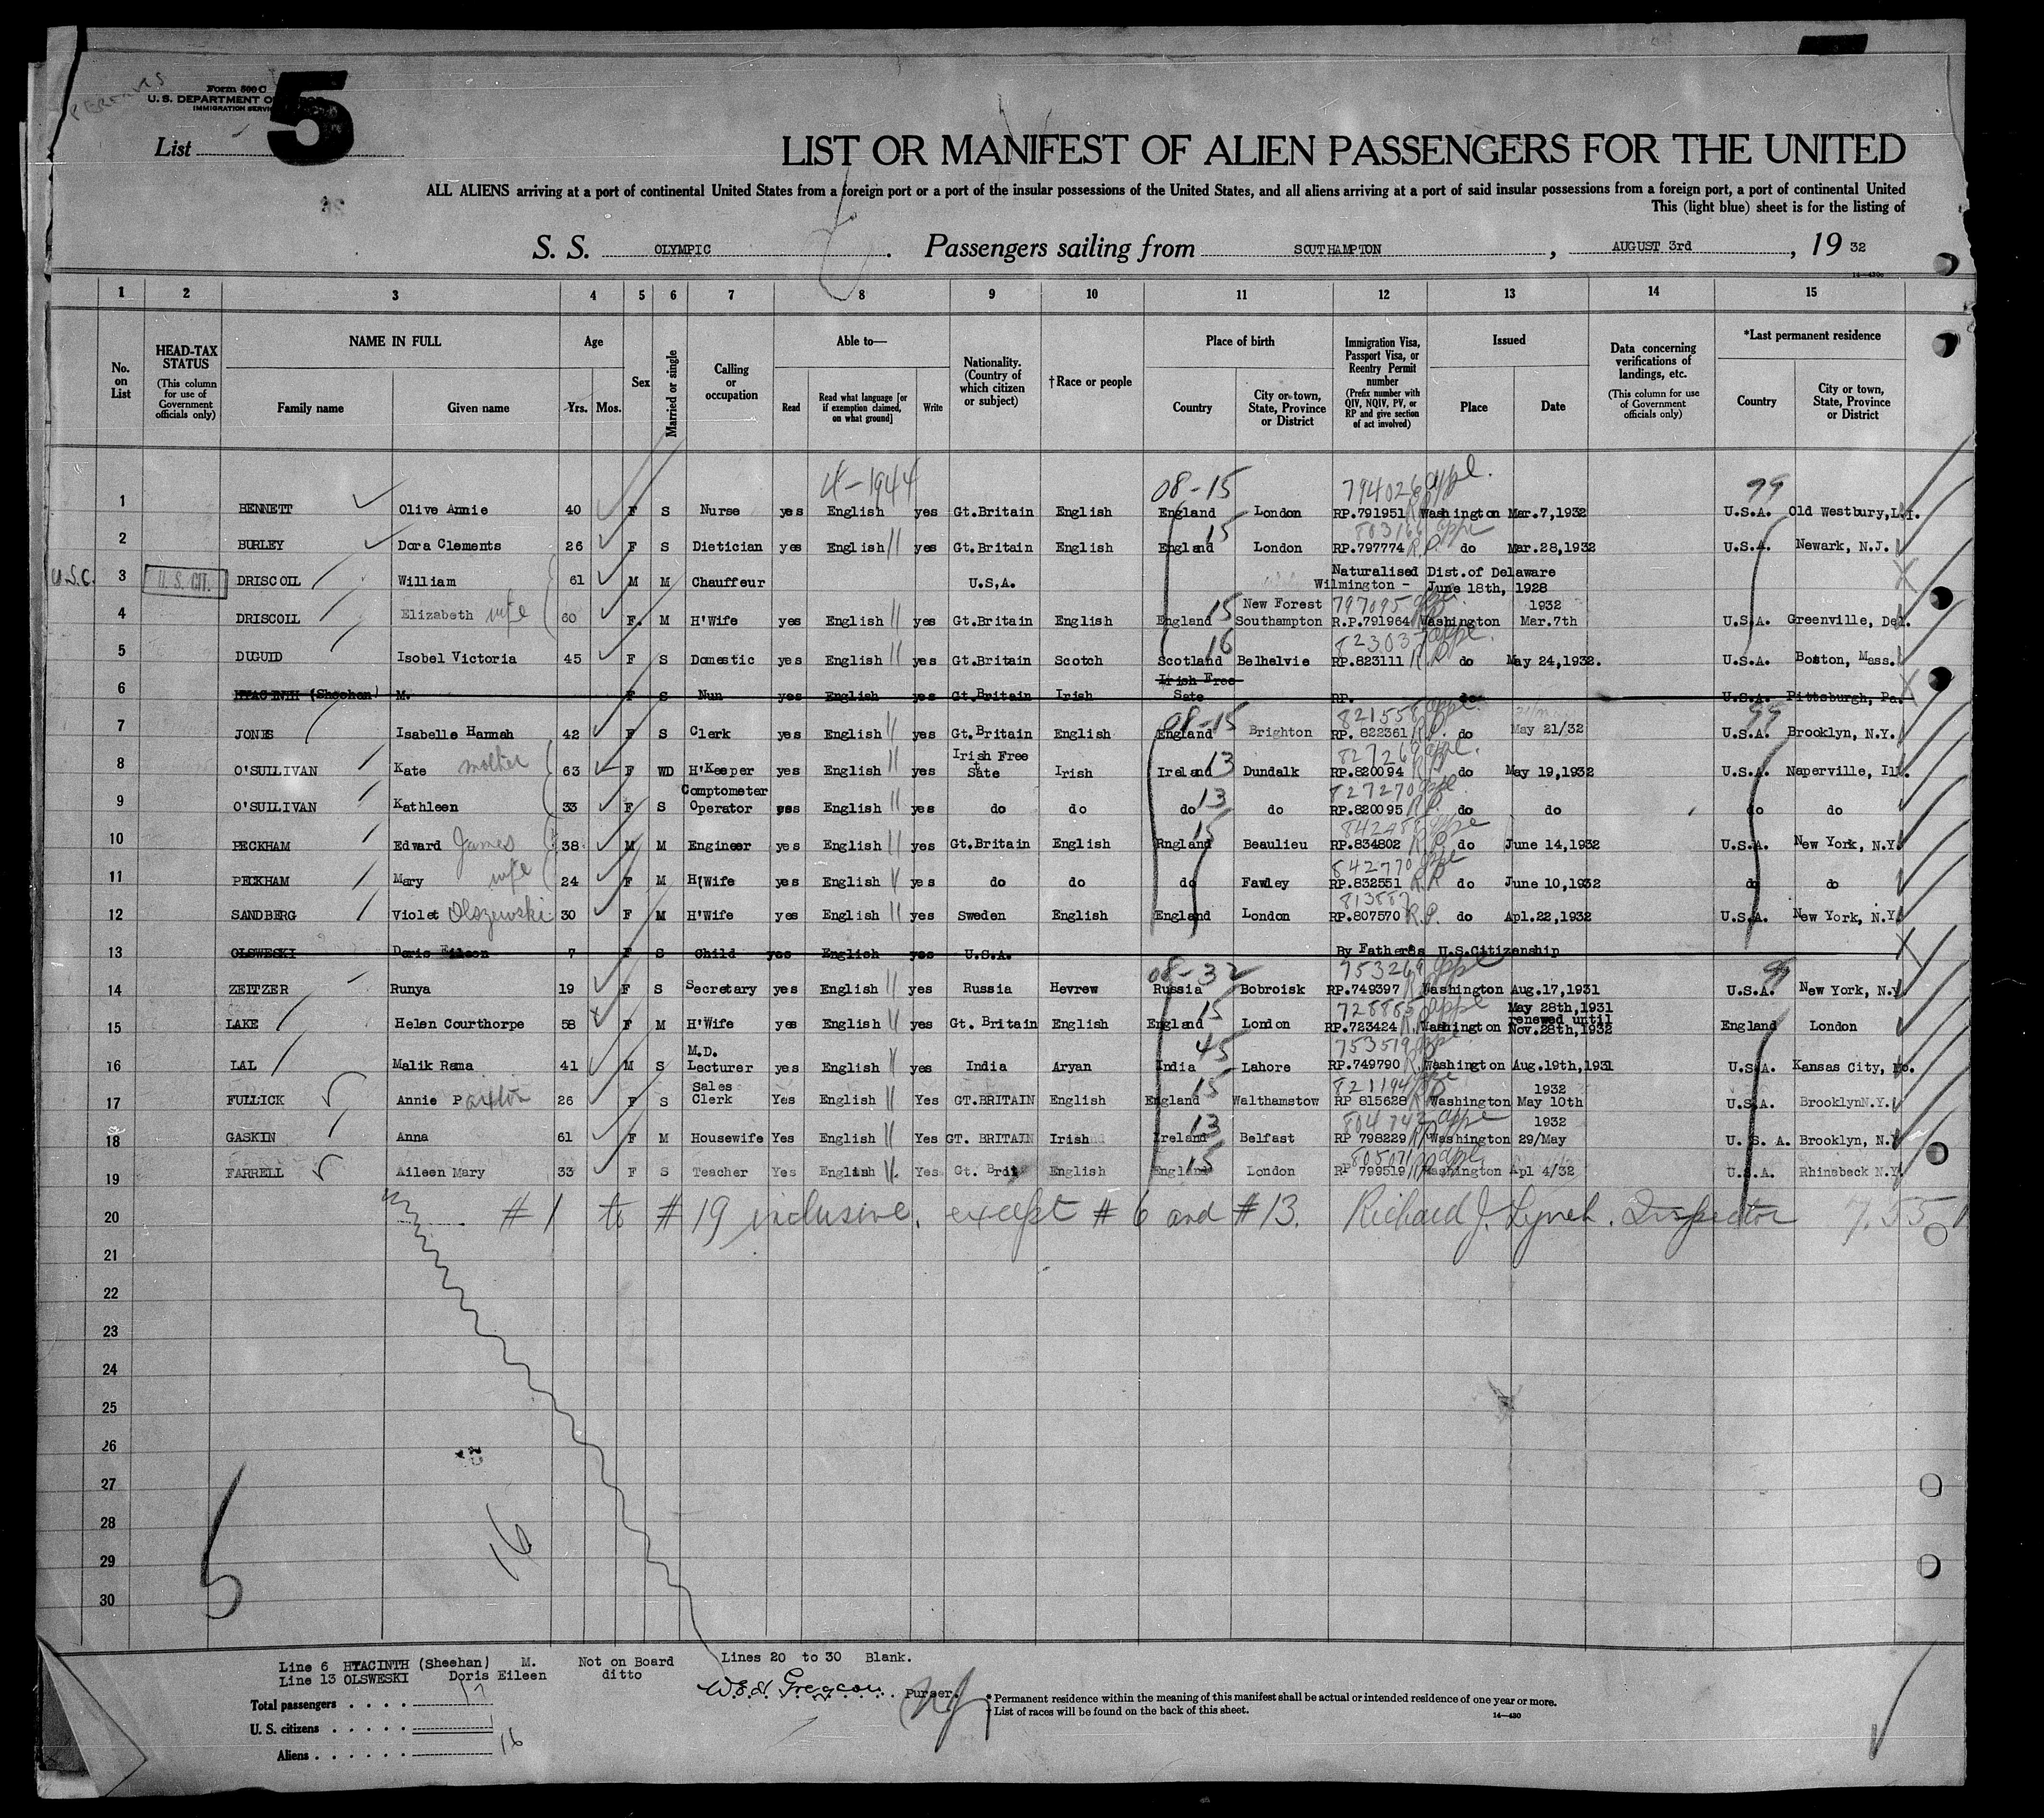 Form 500 C
U. S. DEPARTMENT OF
IMMIGRATION SERVICE
5
List
LIST OR MANIFEST OF ALIEN PASSENGERS FOR THE UNITED
ALL ALIENS arriving at a port of continental United States from a foreign port or a port of the insular possessions of the United States, and all aliens arriving at a port of said insular possessions from a foreign port, a port of continental United
This (light blue) sheet is for the listing of
S. S. OLYMPIC. Passengers sailing from SOUTHAMPTON, AUGUST 3rd, 19 32
1 2 3 4 5 6 7 8 9 10 11 12 13 14 15
No. on List
HEAD-TAX STATUS (This column for use of Government officials only)
NAME IN FULL Family name Given name
Age Yrs. Mos.
Sex
Married or single
Calling or occupation
Able to— Read Read what language [or if exemption claimed, on what ground] Write
Nationality. (Country of which citizen or subject)
†Race or people
Place of birth Country City or town, State, Province or District
Immigration Visa, Passport Visa, or Reentry Permit number (Prefix number with QIV, NQIV, PV, or RP and give section of act involved)
Issued Place Date
Data concerning verifications of landings, etc. (This column for use of Government officials only)
*Last permanent residence Country City or town, State, Province or District
4-1944 08-15 794026 appl. 99
1 BENNETT Olive Annie 40 F S Nurse yes English yes Gt.Britain English England London RP.791951 Washington Mar.7,1932 U.S.A. Old Westbury,L.I.
15
2 BURLEY Dora Clements 26 F S Dietician yes English yes Gt.Britain English England London RP.797774 R.P. do Mar.28,1932 U.S.A. Newark, N.J.
U.S.C. 3 U. S. CIT. DRISCOIL William 61 M M Chauffeur U.S.A. Naturalised Dist.of Delaware
Wilmington - June 18th, 1928
15 New Forest 797095 appl. 1932
4 DRISCOIL Elizabeth wife 60 F. M H'Wife yes English yes Gt.Britain English England Southampton R.P.791964 Washington Mar.7th U.S.A. Greenville, Del.
16 823037 appl.
5 DUGUID Isobel Victoria 45 F S Domestic yes English yes Gt.Britain Scotch Scotland Belhelvie RP.823111 R.P. do May 24,1932. U.S.A. Boston, Mass.
Irish Free
6 HYACINTH (Sheehan) M. F S Nun yes English yes Gt.Britain Irish Sate RP. do U.S.A. Pittsburgh, Pa.
08-15 821558 appl. 99
7 JONES Isabelle Hannah 42 F S Clerk yes English yes Gt.Britain English England Brighton RP. 822361 R.P. do May 21/32 U.S.A. Brooklyn, N.Y.
Irish Free 13 827269 appl.
8 O'SULLIVAN Kate mother 63 F WD H'Keeper yes English yes Sate Irish Ireland Dundalk RP.820094 R.P. do May 19,1932 U.S.A. Naperville, Ill.
Comptometer 13 827270 appl
9 O'SULLIVAN Kathleen 33 F S Operator yes English yes do do do do RP.820095 R.P. do do do do
15
10 PECKHAM Edward James 38 M M Engineer yes English yes Gt.Britain English Rngland Beaulieu RP.834802 R.P. do June 14,1932 U.S.A. New York, N.Y.
842770 appl
11 PECKHAM Mary wife 24 F M H'Wife yes English yes do do do Fawley RP.832551 R.P. do June 10,1932 do do
12 SANDBERG Violet Olszewski 30 F M H'Wife yes English yes Sweden English England London RP.807570 R.P. do Apl.22,1932 U.S.A. New York, N.Y.
13 OLSWESKI Doris Eileen 7 F S Child yes English yes U.S.A. By Father's U.S.Citizenship
08-32 753269 appl 99
14 ZEITZER Runya 19 F S Secretary yes English yes Russia Hevrew Russia Bobroisk RP.749397 Washington Aug.17,1931 U.S.A. New York, N.Y.
15 728885 appl May 28th,1931
renewed until
15 LAKE Helen Courthorpe 58 F M H'Wife yes English yes Gt. Britain English England London RP.723424 Washington Nov.28th,1932 England London
M.D. 45 753519 appl.
16 LAL Malik Rama 41 M S Lecturer yes English yes India Aryan India Lahore RP.749790 Washington Aug.19th,1931 U.S.A. Kansas City, Mo.
Sales 15 821194 1932
17 FULLICK Annie Paxton 26 F S Clerk Yes English Yes GT.BRITAIN English England Walthamstow RP 815628 Washington May 10th U.S.A. BrooklynN.Y.
13 804742 appl 1932
18 GASKIN Anna 61 F M Housewife Yes English Yes GT. BRITAIN Irish Ireland Belfast RP 798229 Washington 29/May U. S. A. Brooklyn, N.Y
15 805071 appl
19 FARRELL Aileen Mary 33 F S Teacher Yes English Yes Gt. Brit English England London RP 799519 Washington Apl 4/32 U.S.A. Rhinebeck N.Y.
20 #1 to #19 inclusive, except #6 and #13. Richard J. Lynch. Inspector
21
22
23
24
25
26
27
28
29
30
16
Line 6 HYACINTH (Sheehan) M. Not on Board Lines 20 to 30 Blank.
Line 13 OLSWESKI Doris Eileen ditto
Total passengers . . . . 17
U. S. citizens . . . . . 1
Aliens . . . . . . 16
Purser.
* Permanent residence within the meaning of this manifest shall be actual or intended residence of one year or more.
† List of races will be found on the back of this sheet.
14—430